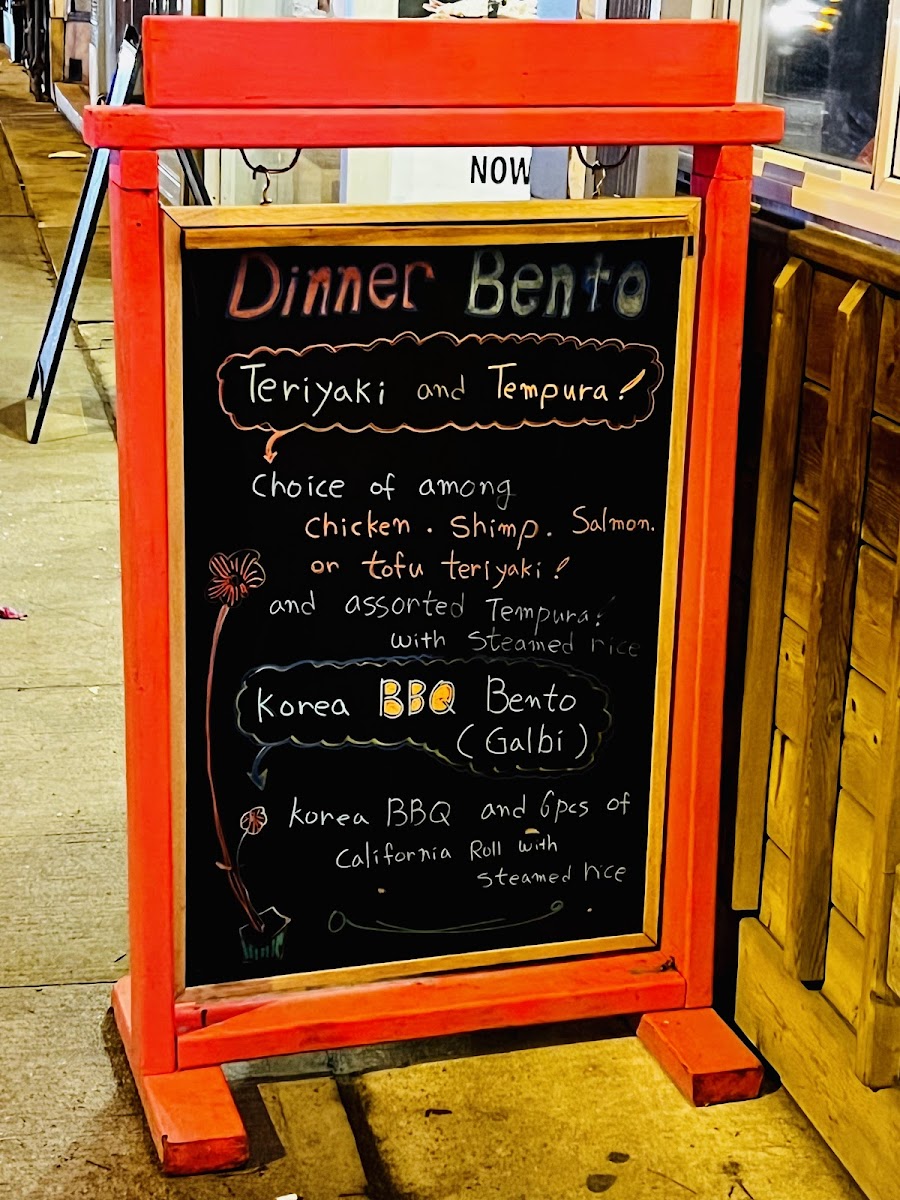 NOW
Dinner Bento
Teriyaki and Tempura!
choice of among
chicken . shimp . Salmon.
or tofu teriyaki!
and assorted Tempura!
with steamed rice
Korea BBQ Bento
(Galbi)
korea BBQ and 6pcs of
California Roll with
steamed rice